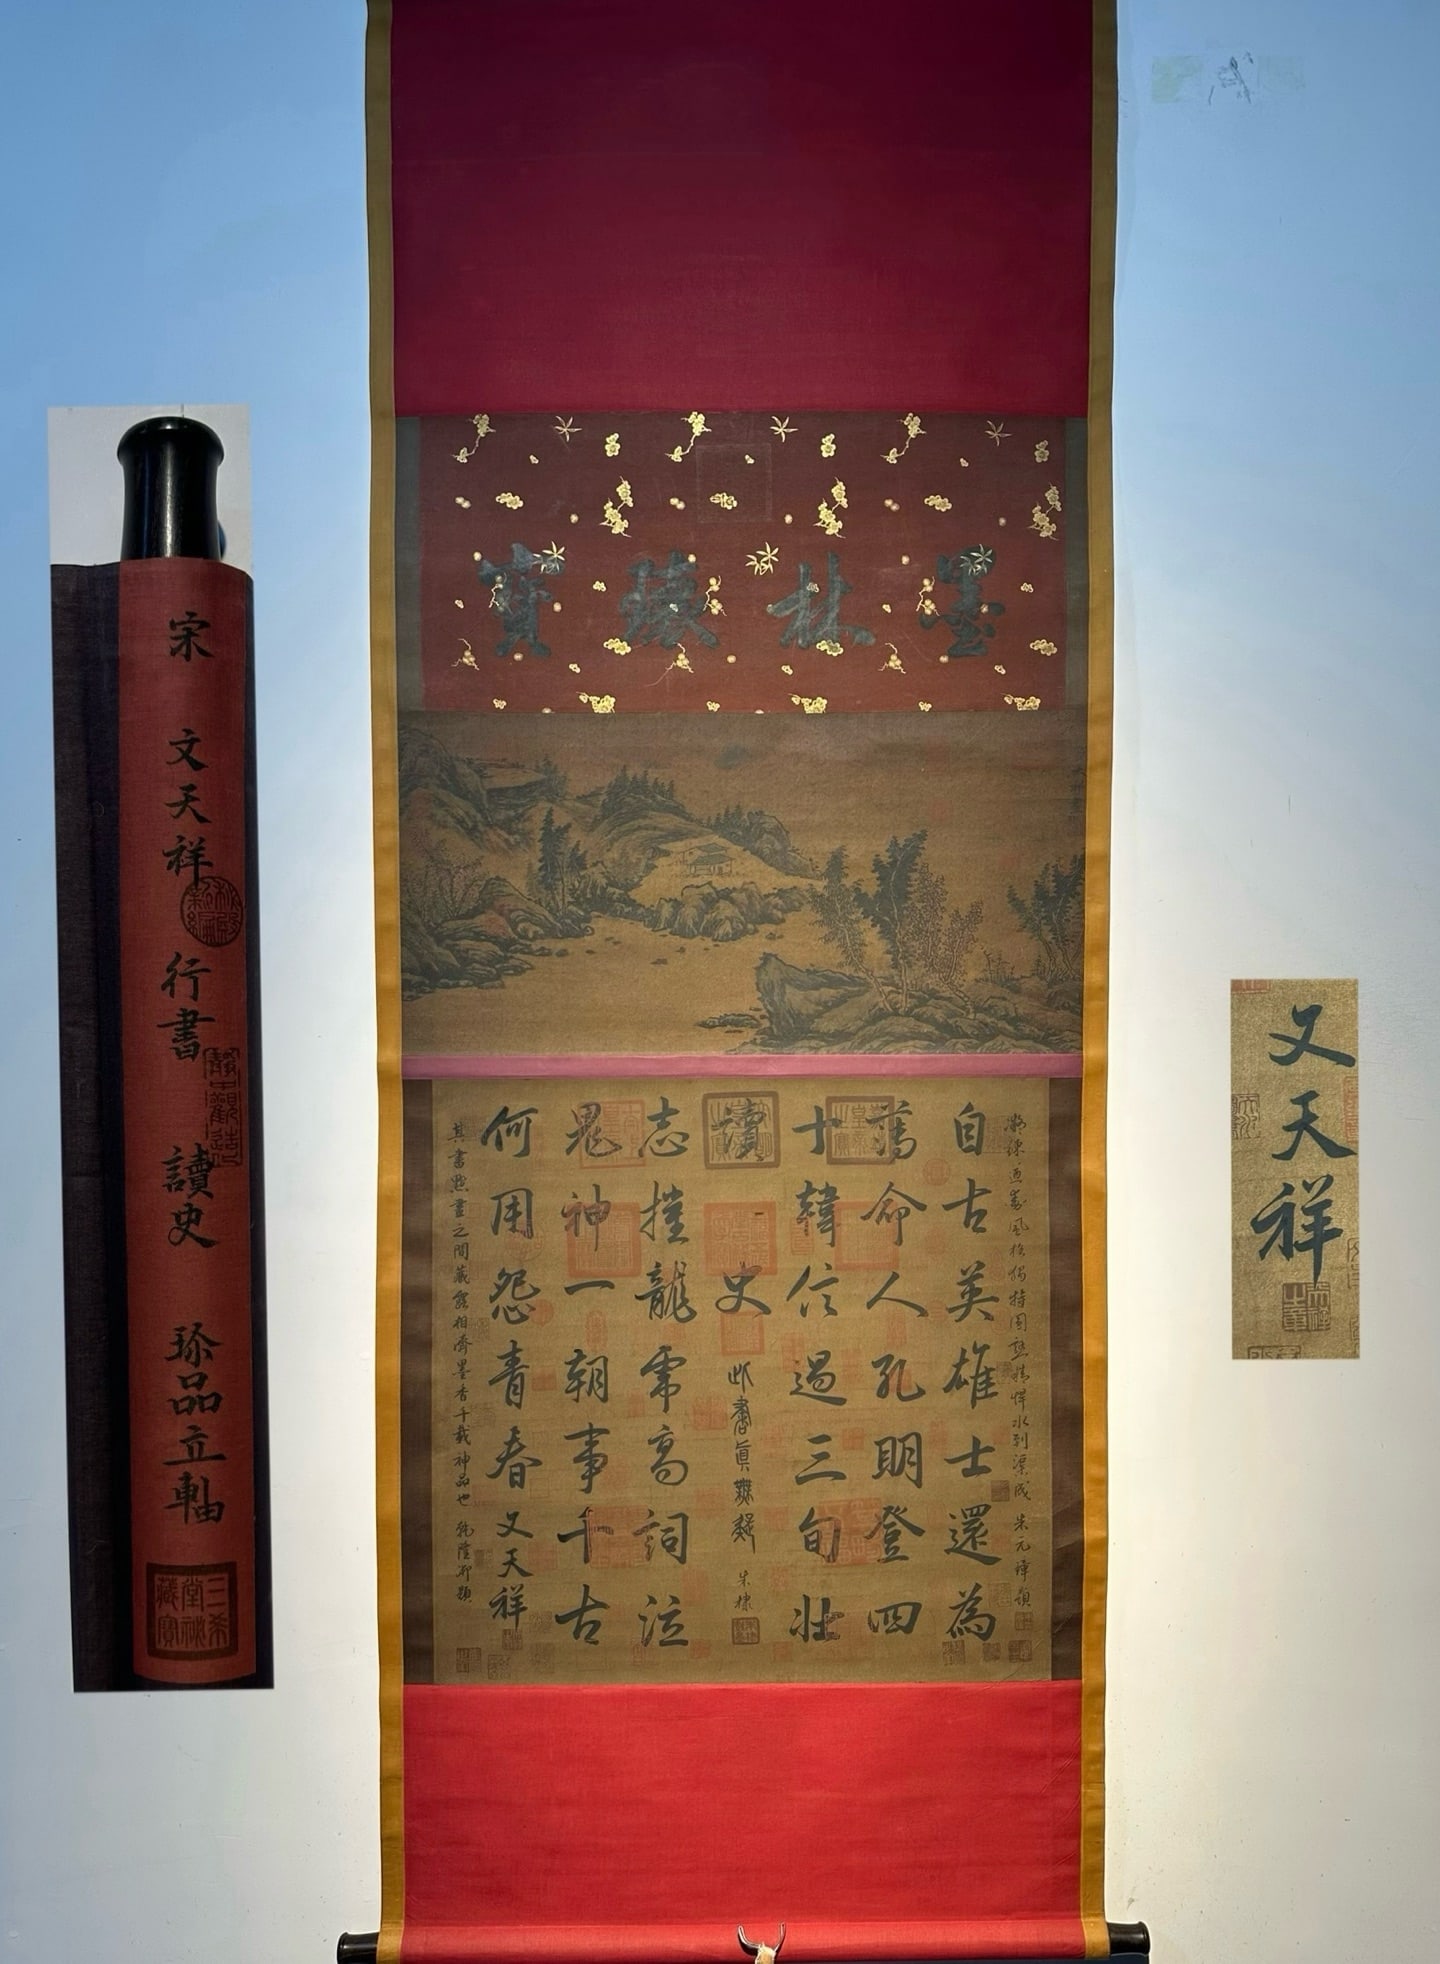 宋 文天祥 行書 讀史 珎品立軸
三希堂秘藏寶
墨林臻寶
自古英雄士還為
薄命人孔明登四
十韓信過三旬壯
讀史
此書真無疑 朱棣
志摧龍虎高詞泣
鬼神一朝事千古
何用怨青春 文天祥
凝練直 風格獨特圓熟精悍水到渠成 朱元璋題
其書點畫之間藏露相濟墨香千載神品也 乾隆御題
文天祥